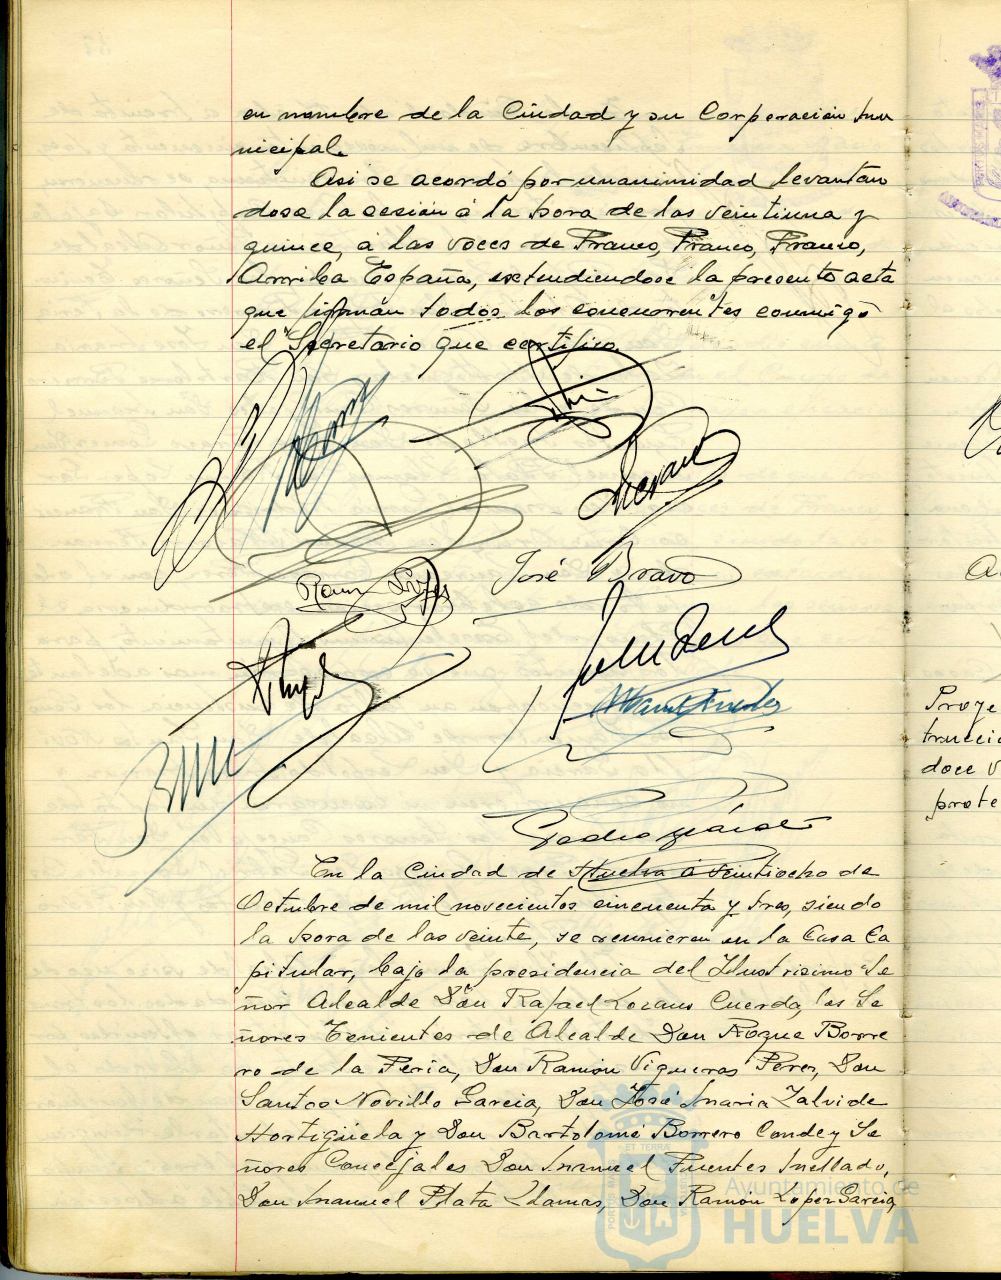 en nombre de la Ciudad y su Corporación mu
nicipal.
Asi se acordó por unanimidad levantán
dose la sesión á la hora de las veintiuna y
quince, á las voces de Franco, Franco, Franco,
Arriba España, extendiendose la presente acta
que firmán todos los concurrentes conmigo
el Secretario que certifico.
José Bravo
En la Ciudad de Huelva á veintiocho de
Octubre de mil novecientos cincuenta y tres, siendo
la hora de las veinte, se reunieron en la Casa Ca
pitular, bajo la presidencia del Ilustrisimo Se
ñor Alcalde Don Rafael Lozano Cuerda, los Se
ñores Tenientes de Alcalde Don Roque Borre
ro de la Feria, Don Ramón Vigueras Perez, Don
Santos Novillo Garcia, Don José Maria Zalvide
Hortigüela y Don Bartolomé Borrero Conde y Se
ñores Concejales Don Manuel Fuentes Mellado,
Don Manuel Plata Llamas, Don Ramón Lopez Garcia,
Proye
trucció
doce v
prote
Ayuntamiento de
HUELVA